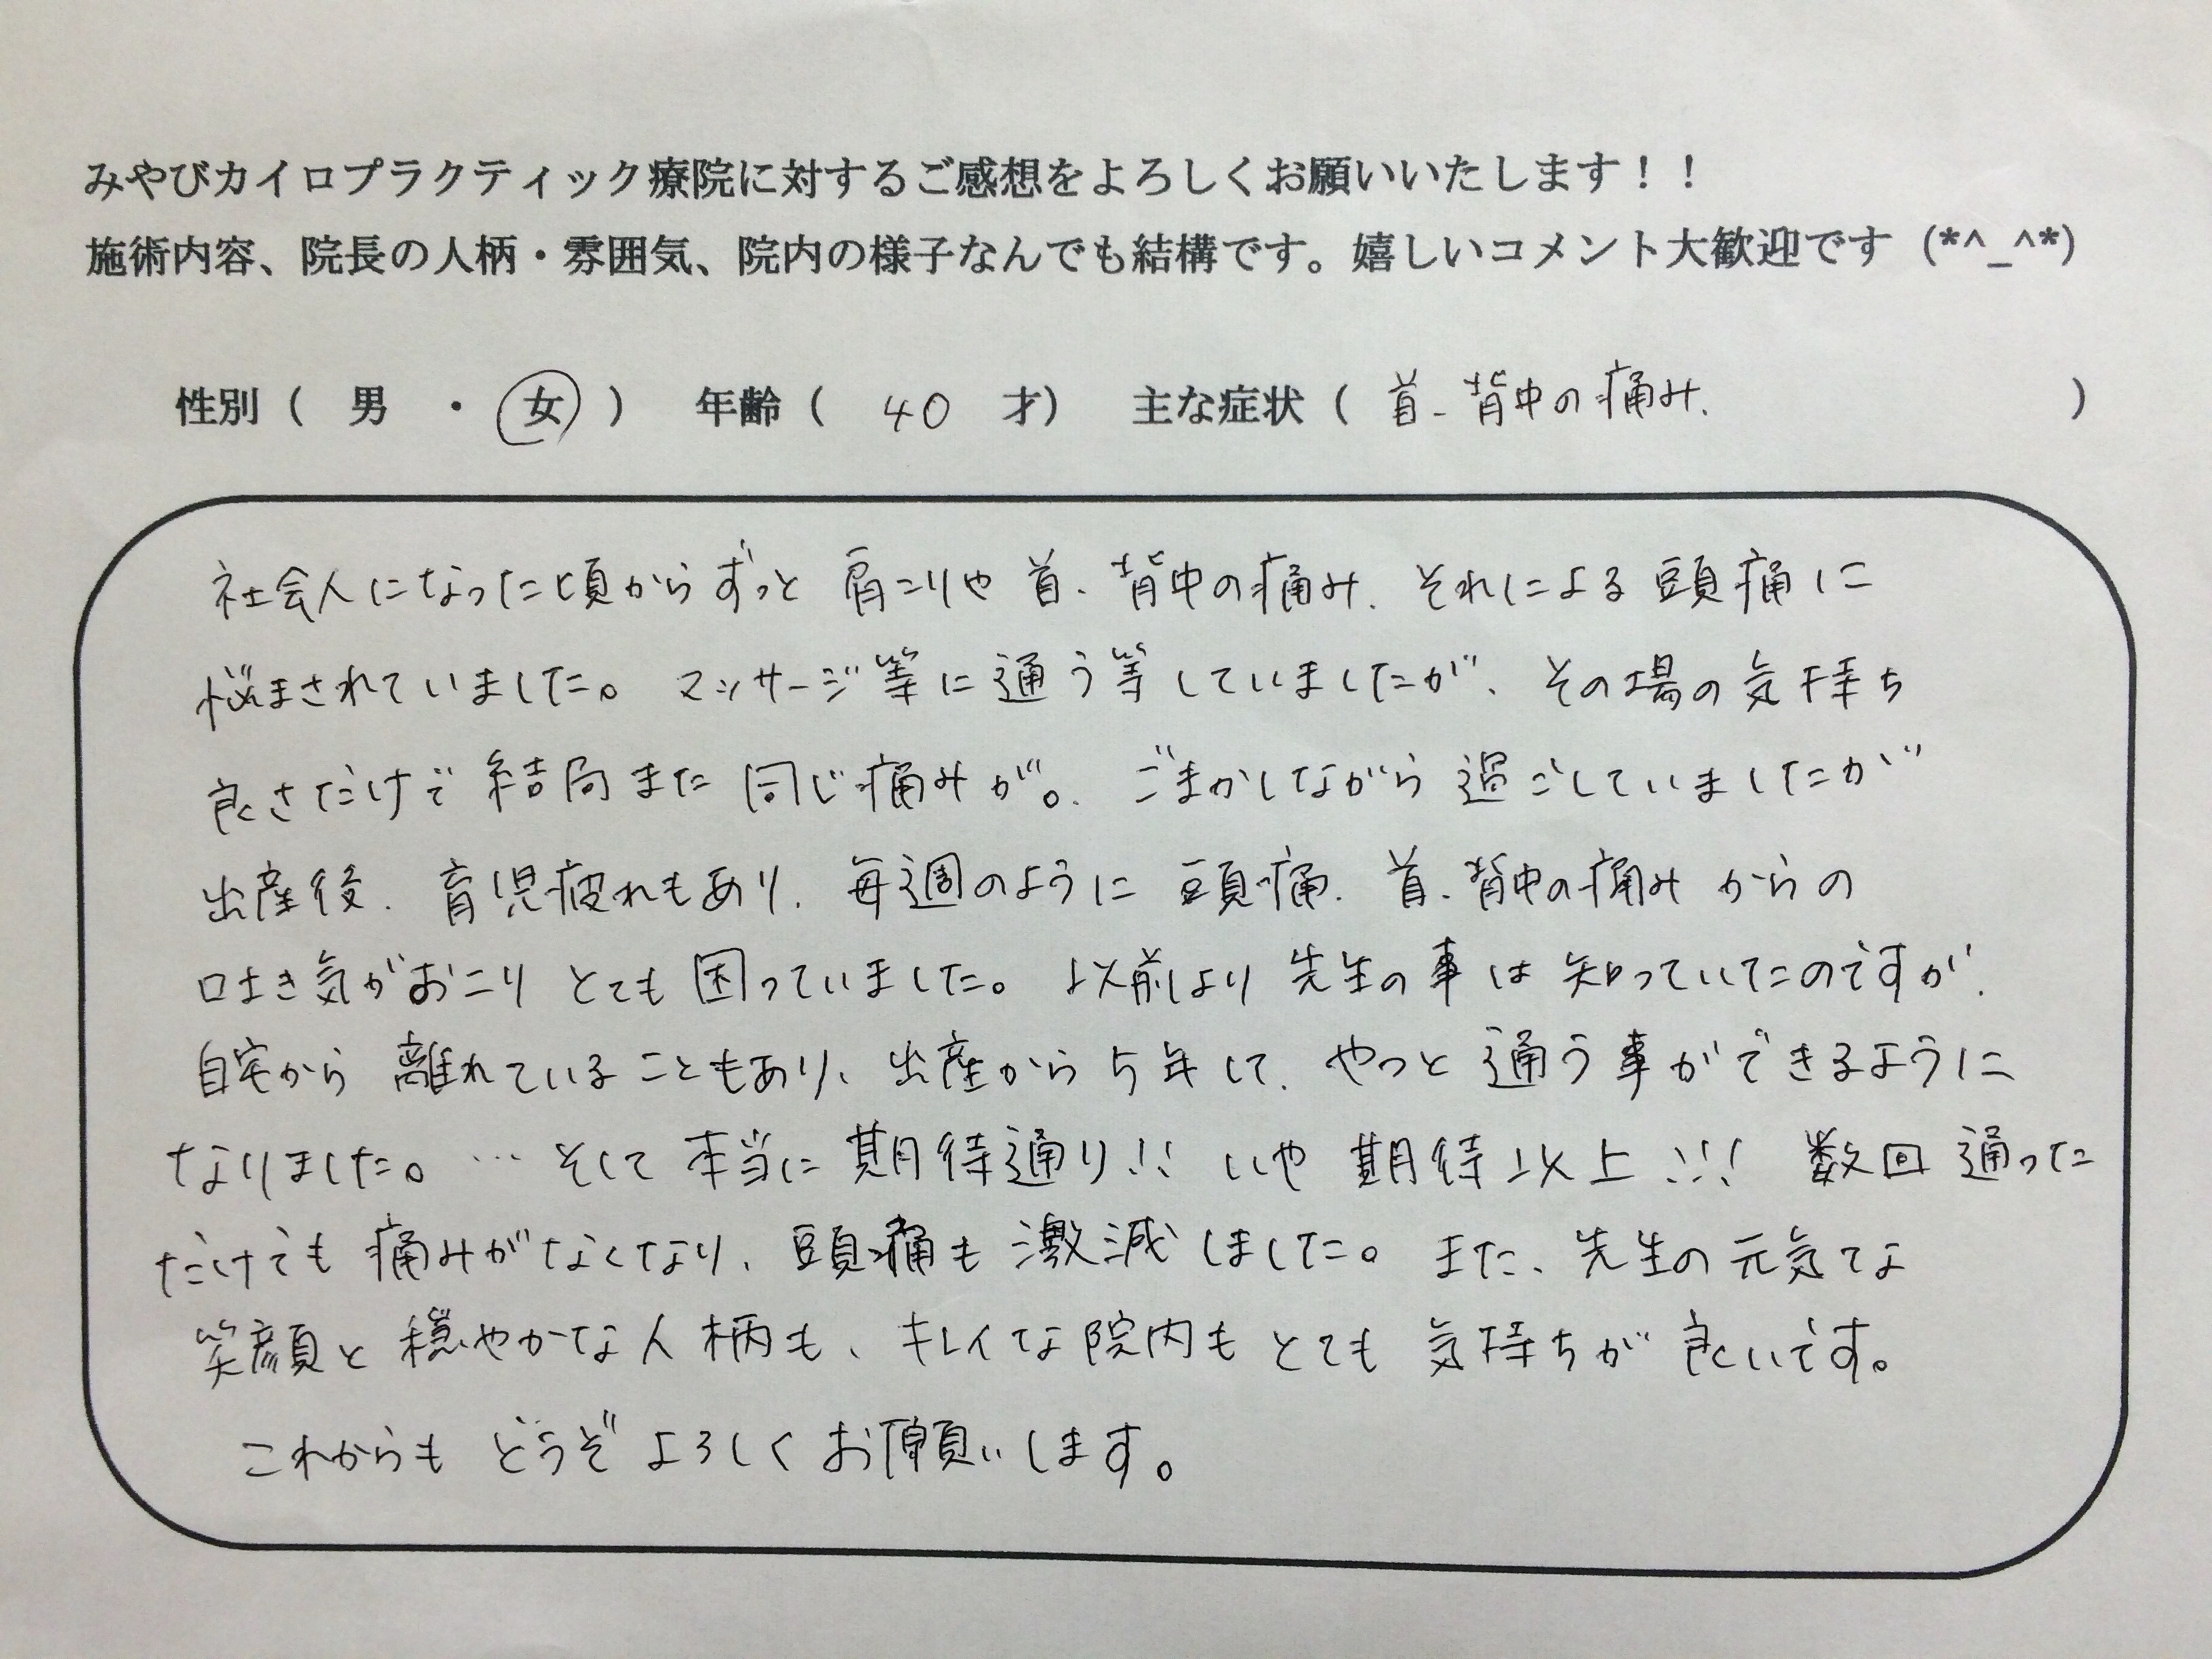 みやびカイロプラクティック療院に対するご感想をよろしくお願いいたします！！
施術内容、院長の人柄・雰囲気、院内の様子なんでも結構です。嬉しいコメント大歓迎です（*^_^*）
性別（ 男 ・ 女 ） 年齢（ 40 才） 主な症状（ 首、背中の痛み、 ）
社会人になった頃からずっと 肩こりや 首、背中の痛み、それによる頭痛に
悩まされていました。マッサージ等に通う等していましたが、その場の気持ち
良さだけで結局また同じ痛みが。ごまかしながら過ごしていましたが
出産後、育児疲れもあり、毎週のように頭痛、首、背中の痛みからの
吐き気がおこりとても困っていました。以前より先生の事は知っていたのですが、
自宅から離れていることもあり、出産から5年して、やっと通う事ができるように
なりました。…そして本当に期待通り!! いや期待以上!!! 数回通った
だけでも痛みがなくなり、頭痛も激減しました。また、先生の元気な
笑顔と穏やかな人柄も、キレイな院内もとても気持ちが良いです。
これからもどうぞよろしくお願いします。